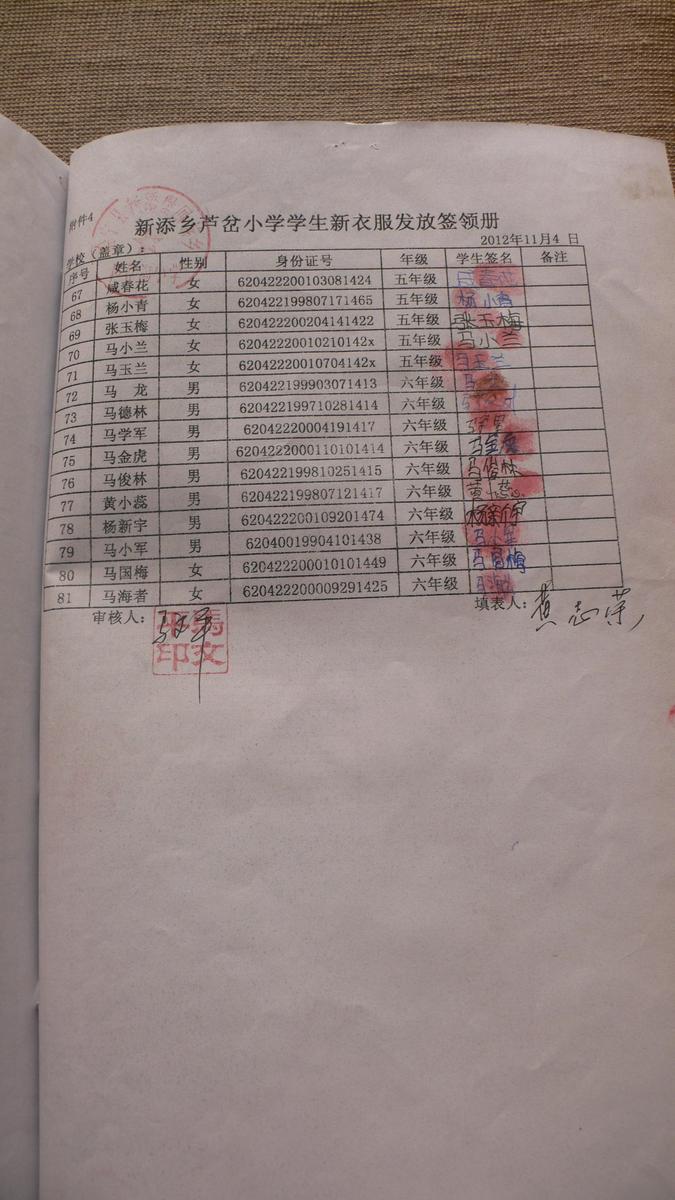 附件4
新添乡芦岔小学学生新衣服发放签领册
学校（盖章）：
2012年11月4 日
序号 姓名 性别 身份证号 年级 学生签名 备注
67 咸春花 女 620422200103081424 五年级 咸春花
68 杨小青 女 620422199807171465 五年级 杨小青
69 张玉梅 女 620422200204141422 五年级 张玉梅
70 马小兰 女 62042220010210142x 五年级 马小兰
71 马玉兰 女 62042220010704142x 五年级 马玉兰
72 马 龙 男 620422199903071413 六年级 马
73 马德林 男 620422199710281414 六年级
74 马学军 男 62042220004191417 六年级
75 马金虎 男 6204222000110101414 六年级 马金虎
76 马俊林 男 620422199810251415 六年级 马俊林
77 黄小蕊 男 620422199807121417 六年级 黄小蕊
78 杨新宇 男 620422200109201474 六年级 杨新宇
79 马小军 男 62040019904101438 六年级 马小军
80 马国梅 女 620422200010101449 六年级 马国梅
81 马海者 女 620422200009291425 六年级 马海
审核人： 填表人：黄志荣
馬文平印